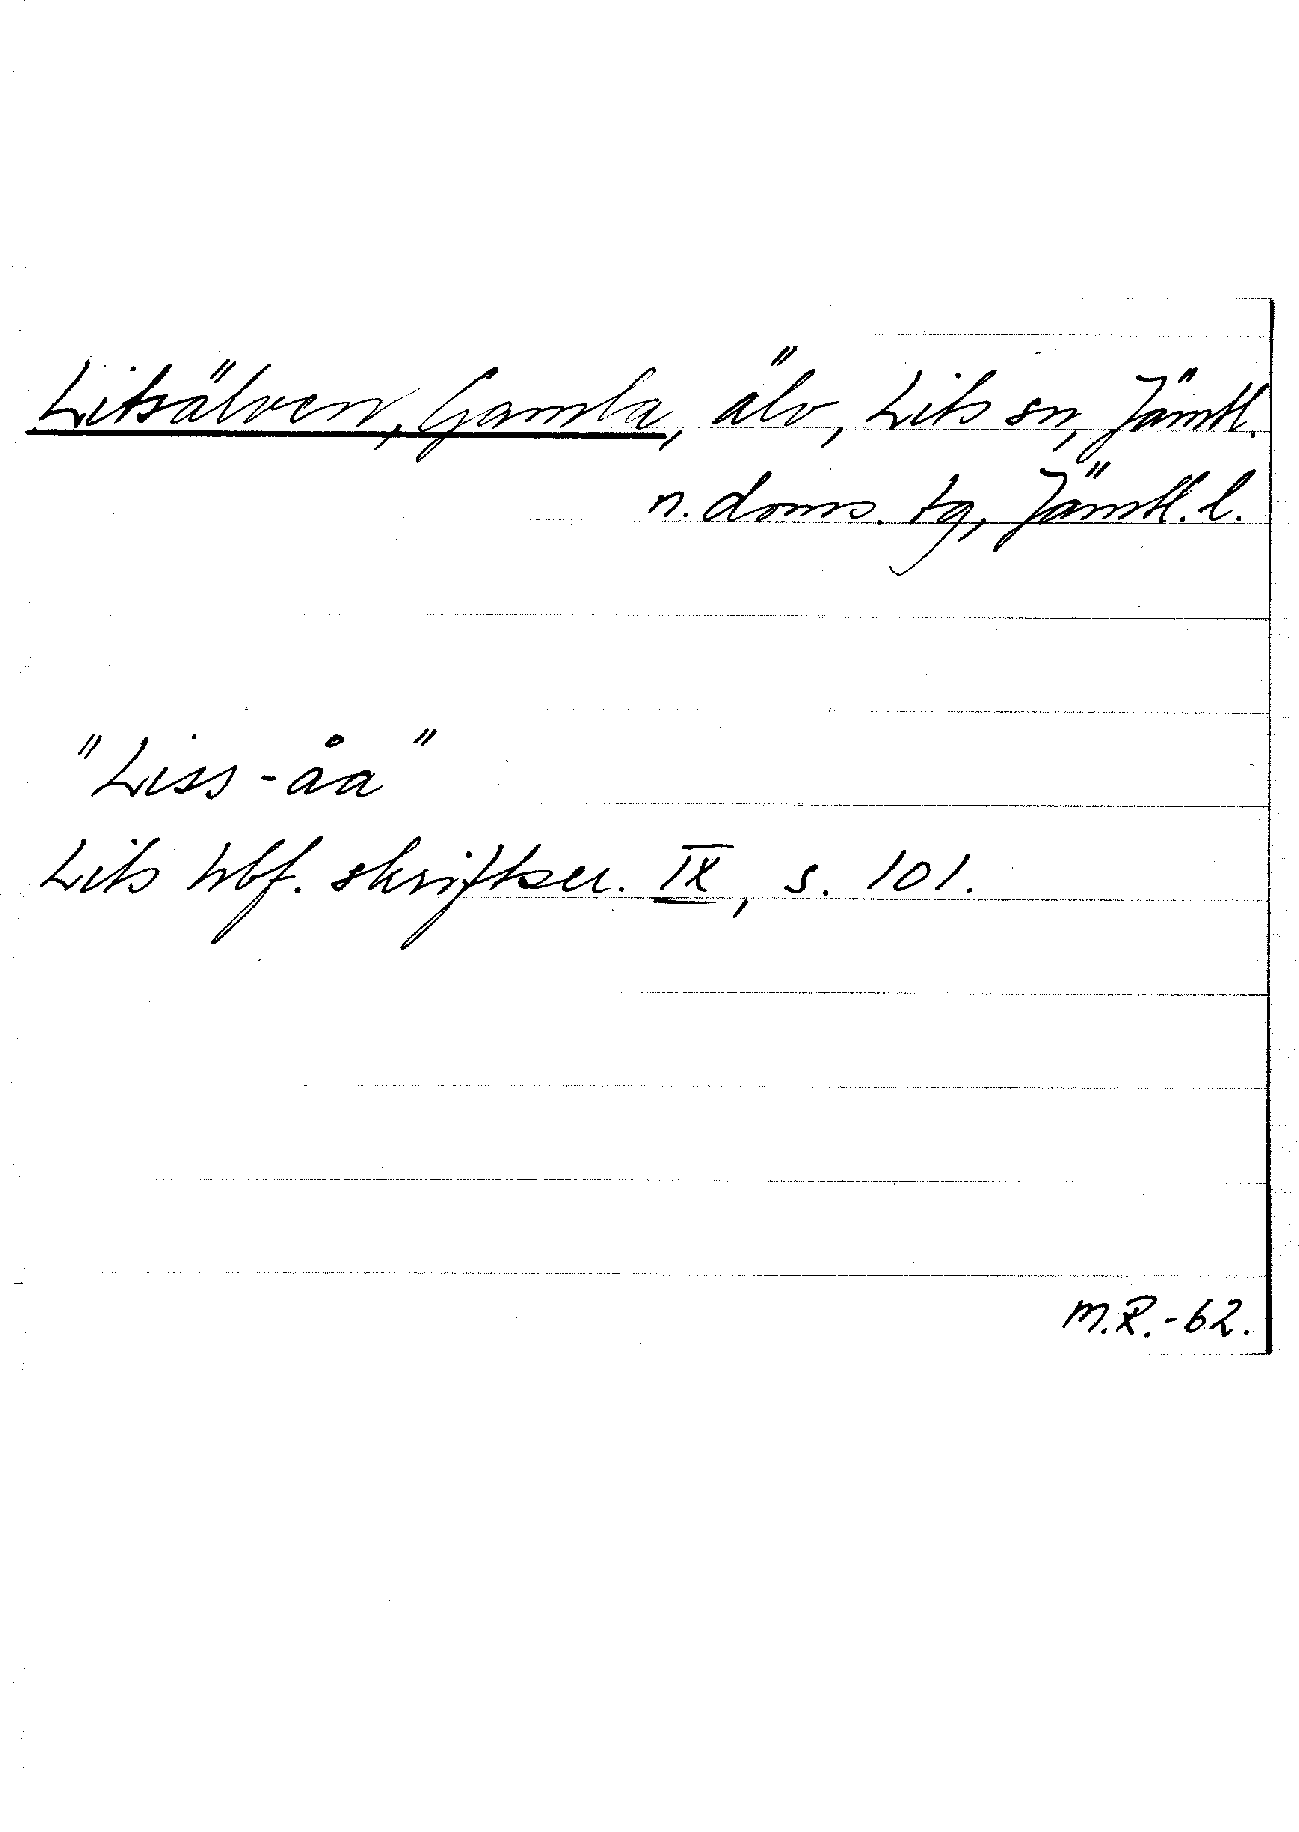 Litsälven, Gamla, älv, Lits sn, Jämtl.
n. doms. tg, Jämtl. l.
"Liss-åa"
Lits hbf. skriftser. IX, s. 101.
M.R.-62.